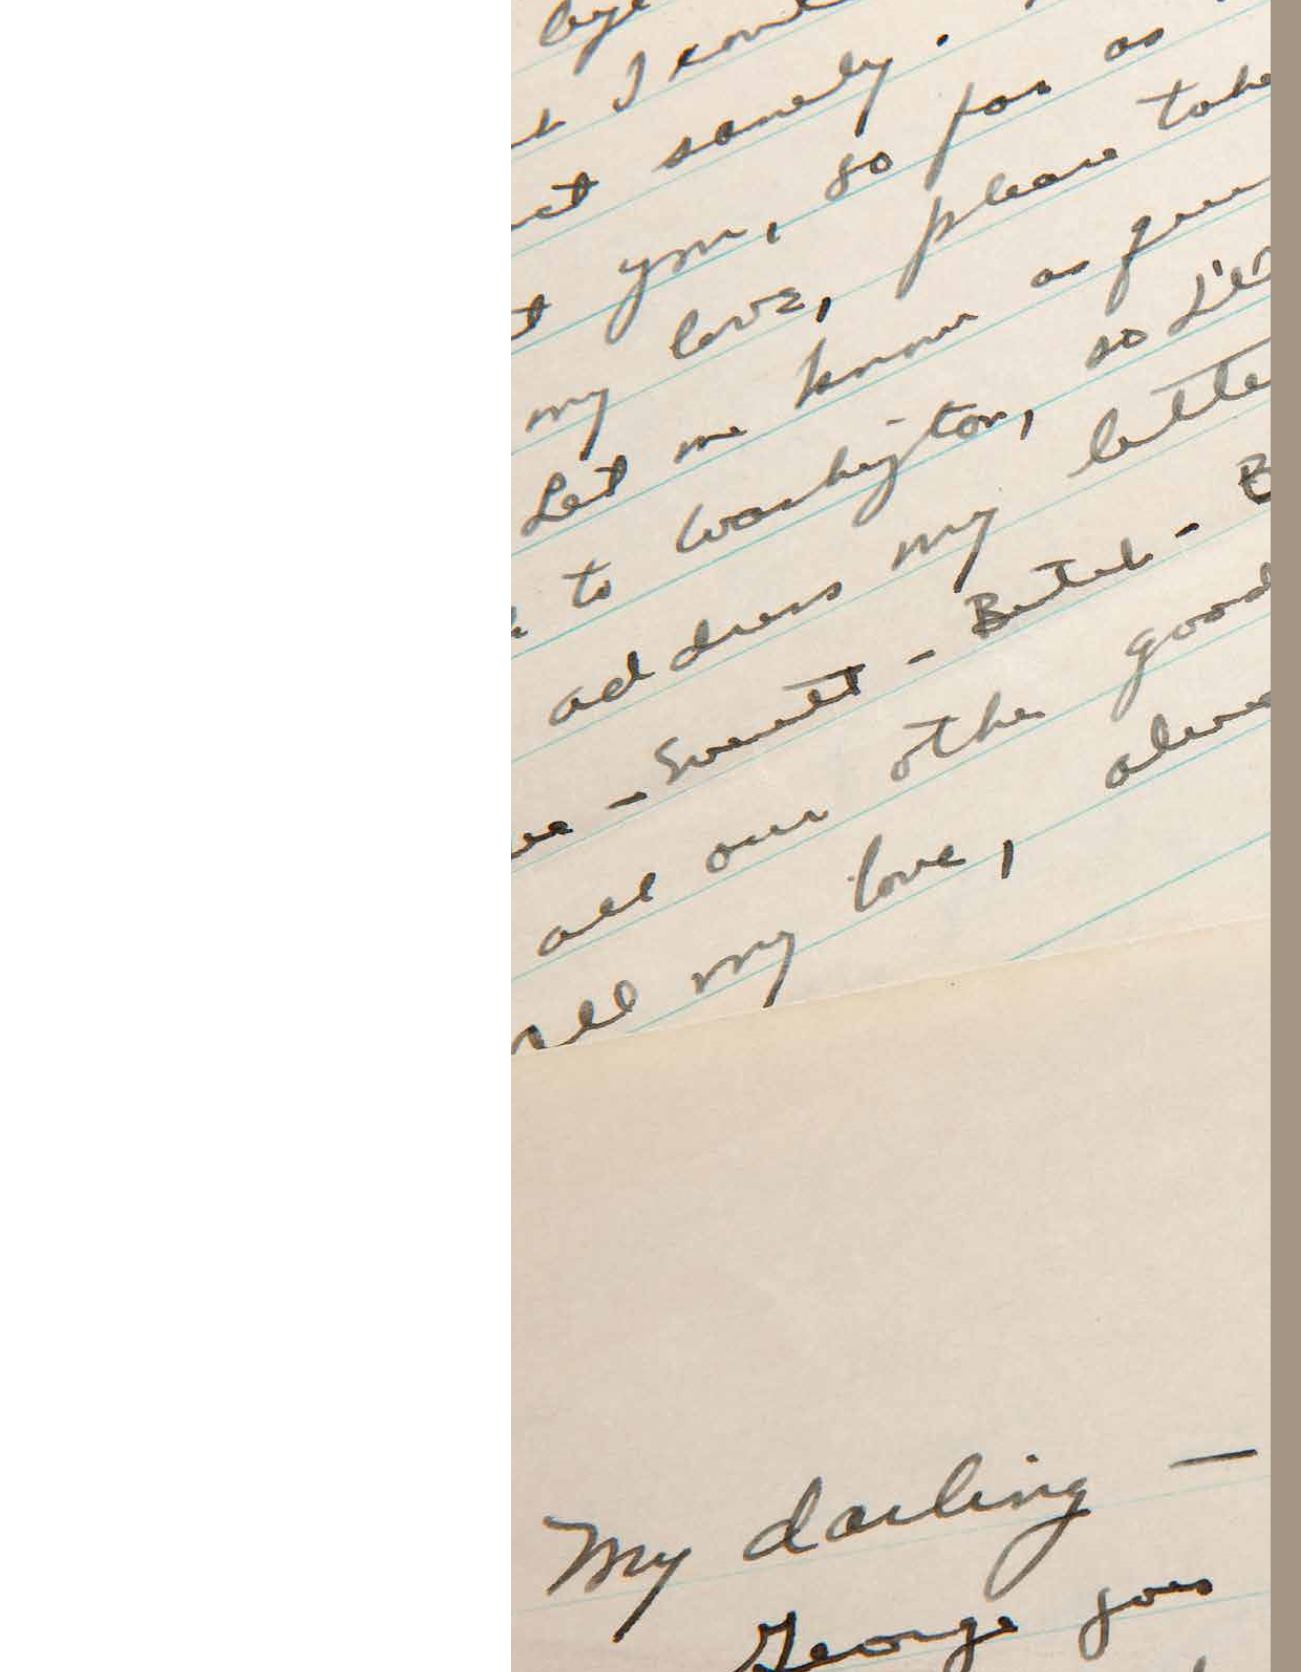 I
sanely.
you, so far as
my love, please take
Let me know as
to Washington, so I'll
address my
- Butch -
all our other good
All my love,
My darling —
George goes